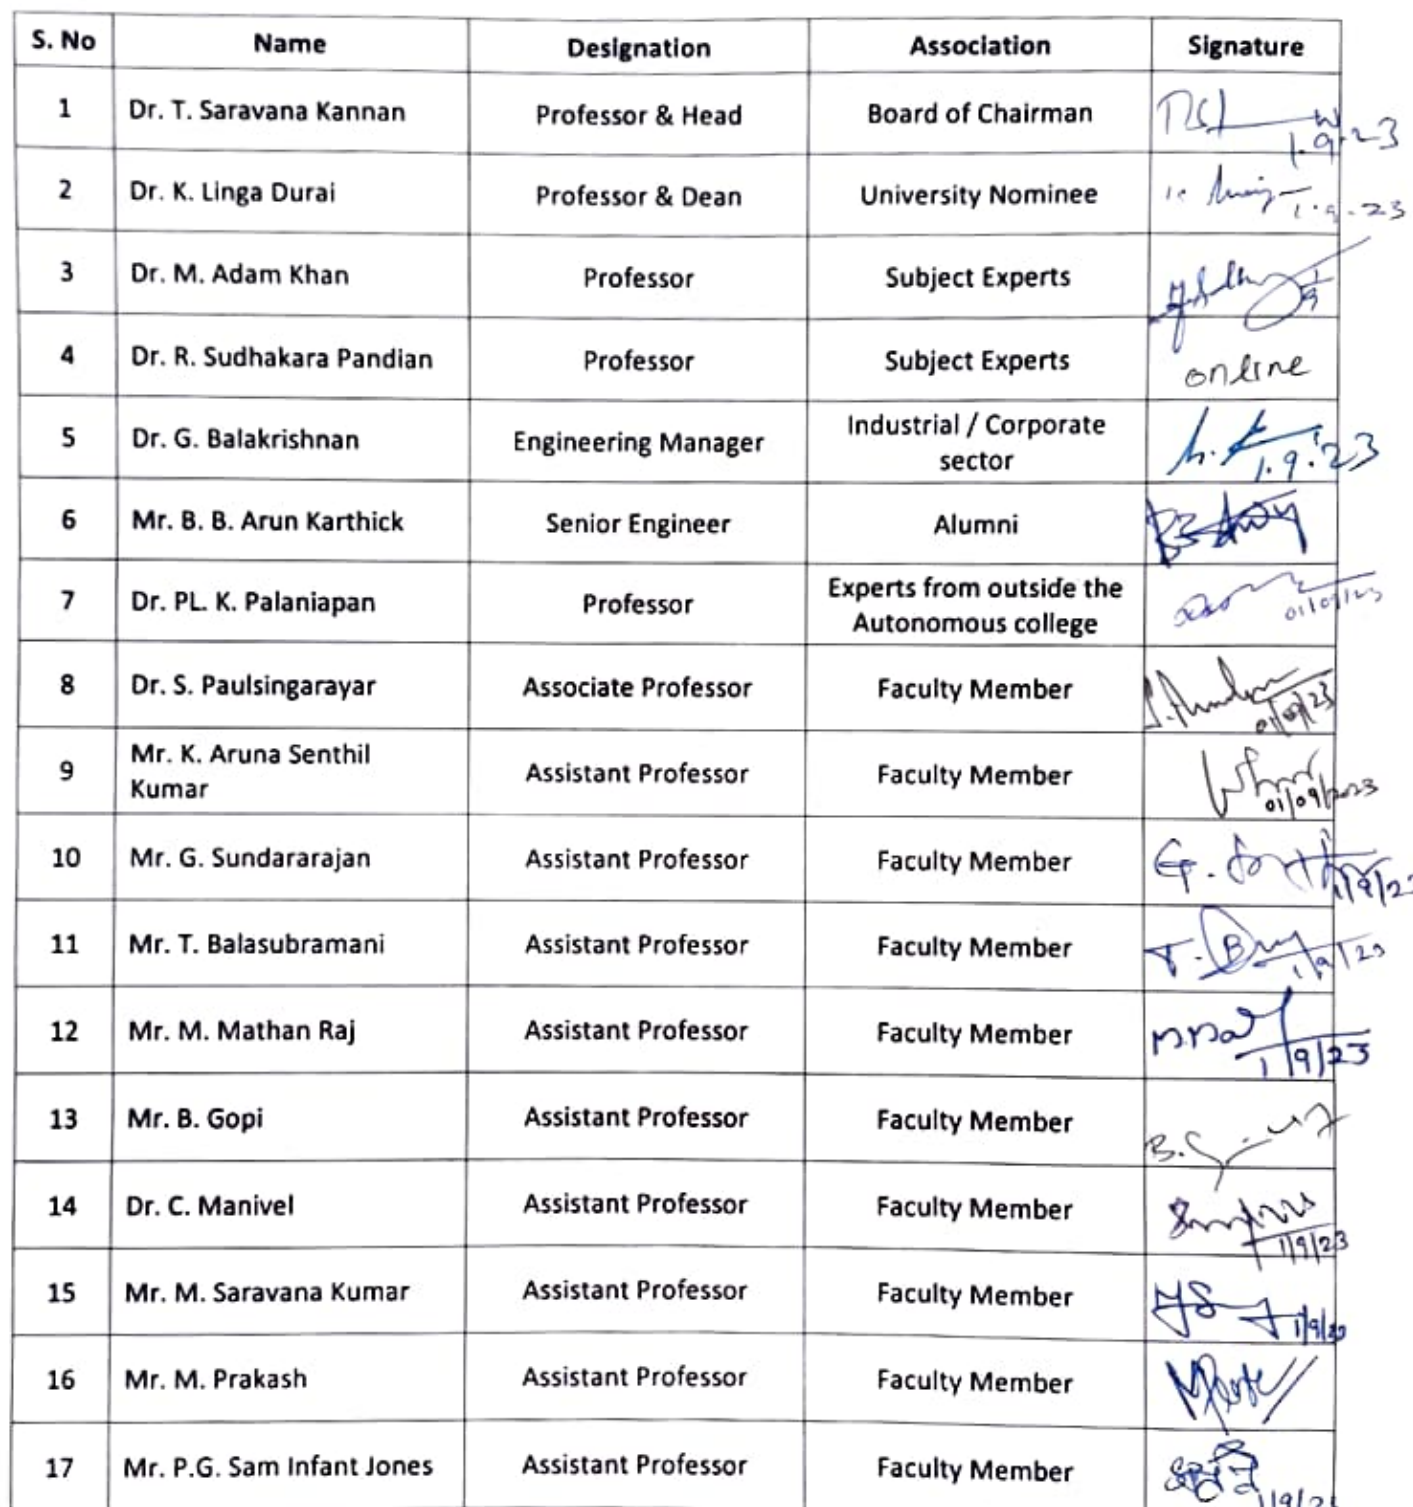 S. No Name Designation Association Signature
1 Dr. T. Saravana Kannan Professor & Head Board of Chairman
1.9.23
2 Dr. K. Linga Durai Professor & Dean University Nominee
1.9.23
3 Dr. M. Adam Khan Professor Subject Experts
4 Dr. R. Sudhakara Pandian Professor Subject Experts online
5 Dr. G. Balakrishnan Engineering Manager Industrial / Corporate
sector
1.9.'23
6 Mr. B. B. Arun Karthick Senior Engineer Alumni
7 Dr. PL. K. Palaniapan Professor Experts from outside the
Autonomous college
01/09/23
8 Dr. S. Paulsingarayar Associate Professor Faculty Member
01/09/23
9 Mr. K. Aruna Senthil
Kumar Assistant Professor Faculty Member
01/09/2023
10 Mr. G. Sundararajan Assistant Professor Faculty Member
1/9/23
11 Mr. T. Balasubramani Assistant Professor Faculty Member
1/9/23
12 Mr. M. Mathan Raj Assistant Professor Faculty Member
1/9/23
13 Mr. B. Gopi Assistant Professor Faculty Member
14 Dr. C. Manivel Assistant Professor Faculty Member
1/9/23
15 Mr. M. Saravana Kumar Assistant Professor Faculty Member
1/9/23
16 Mr. M. Prakash Assistant Professor Faculty Member
17 Mr. P.G. Sam Infant Jones Assistant Professor Faculty Member
1/9/23